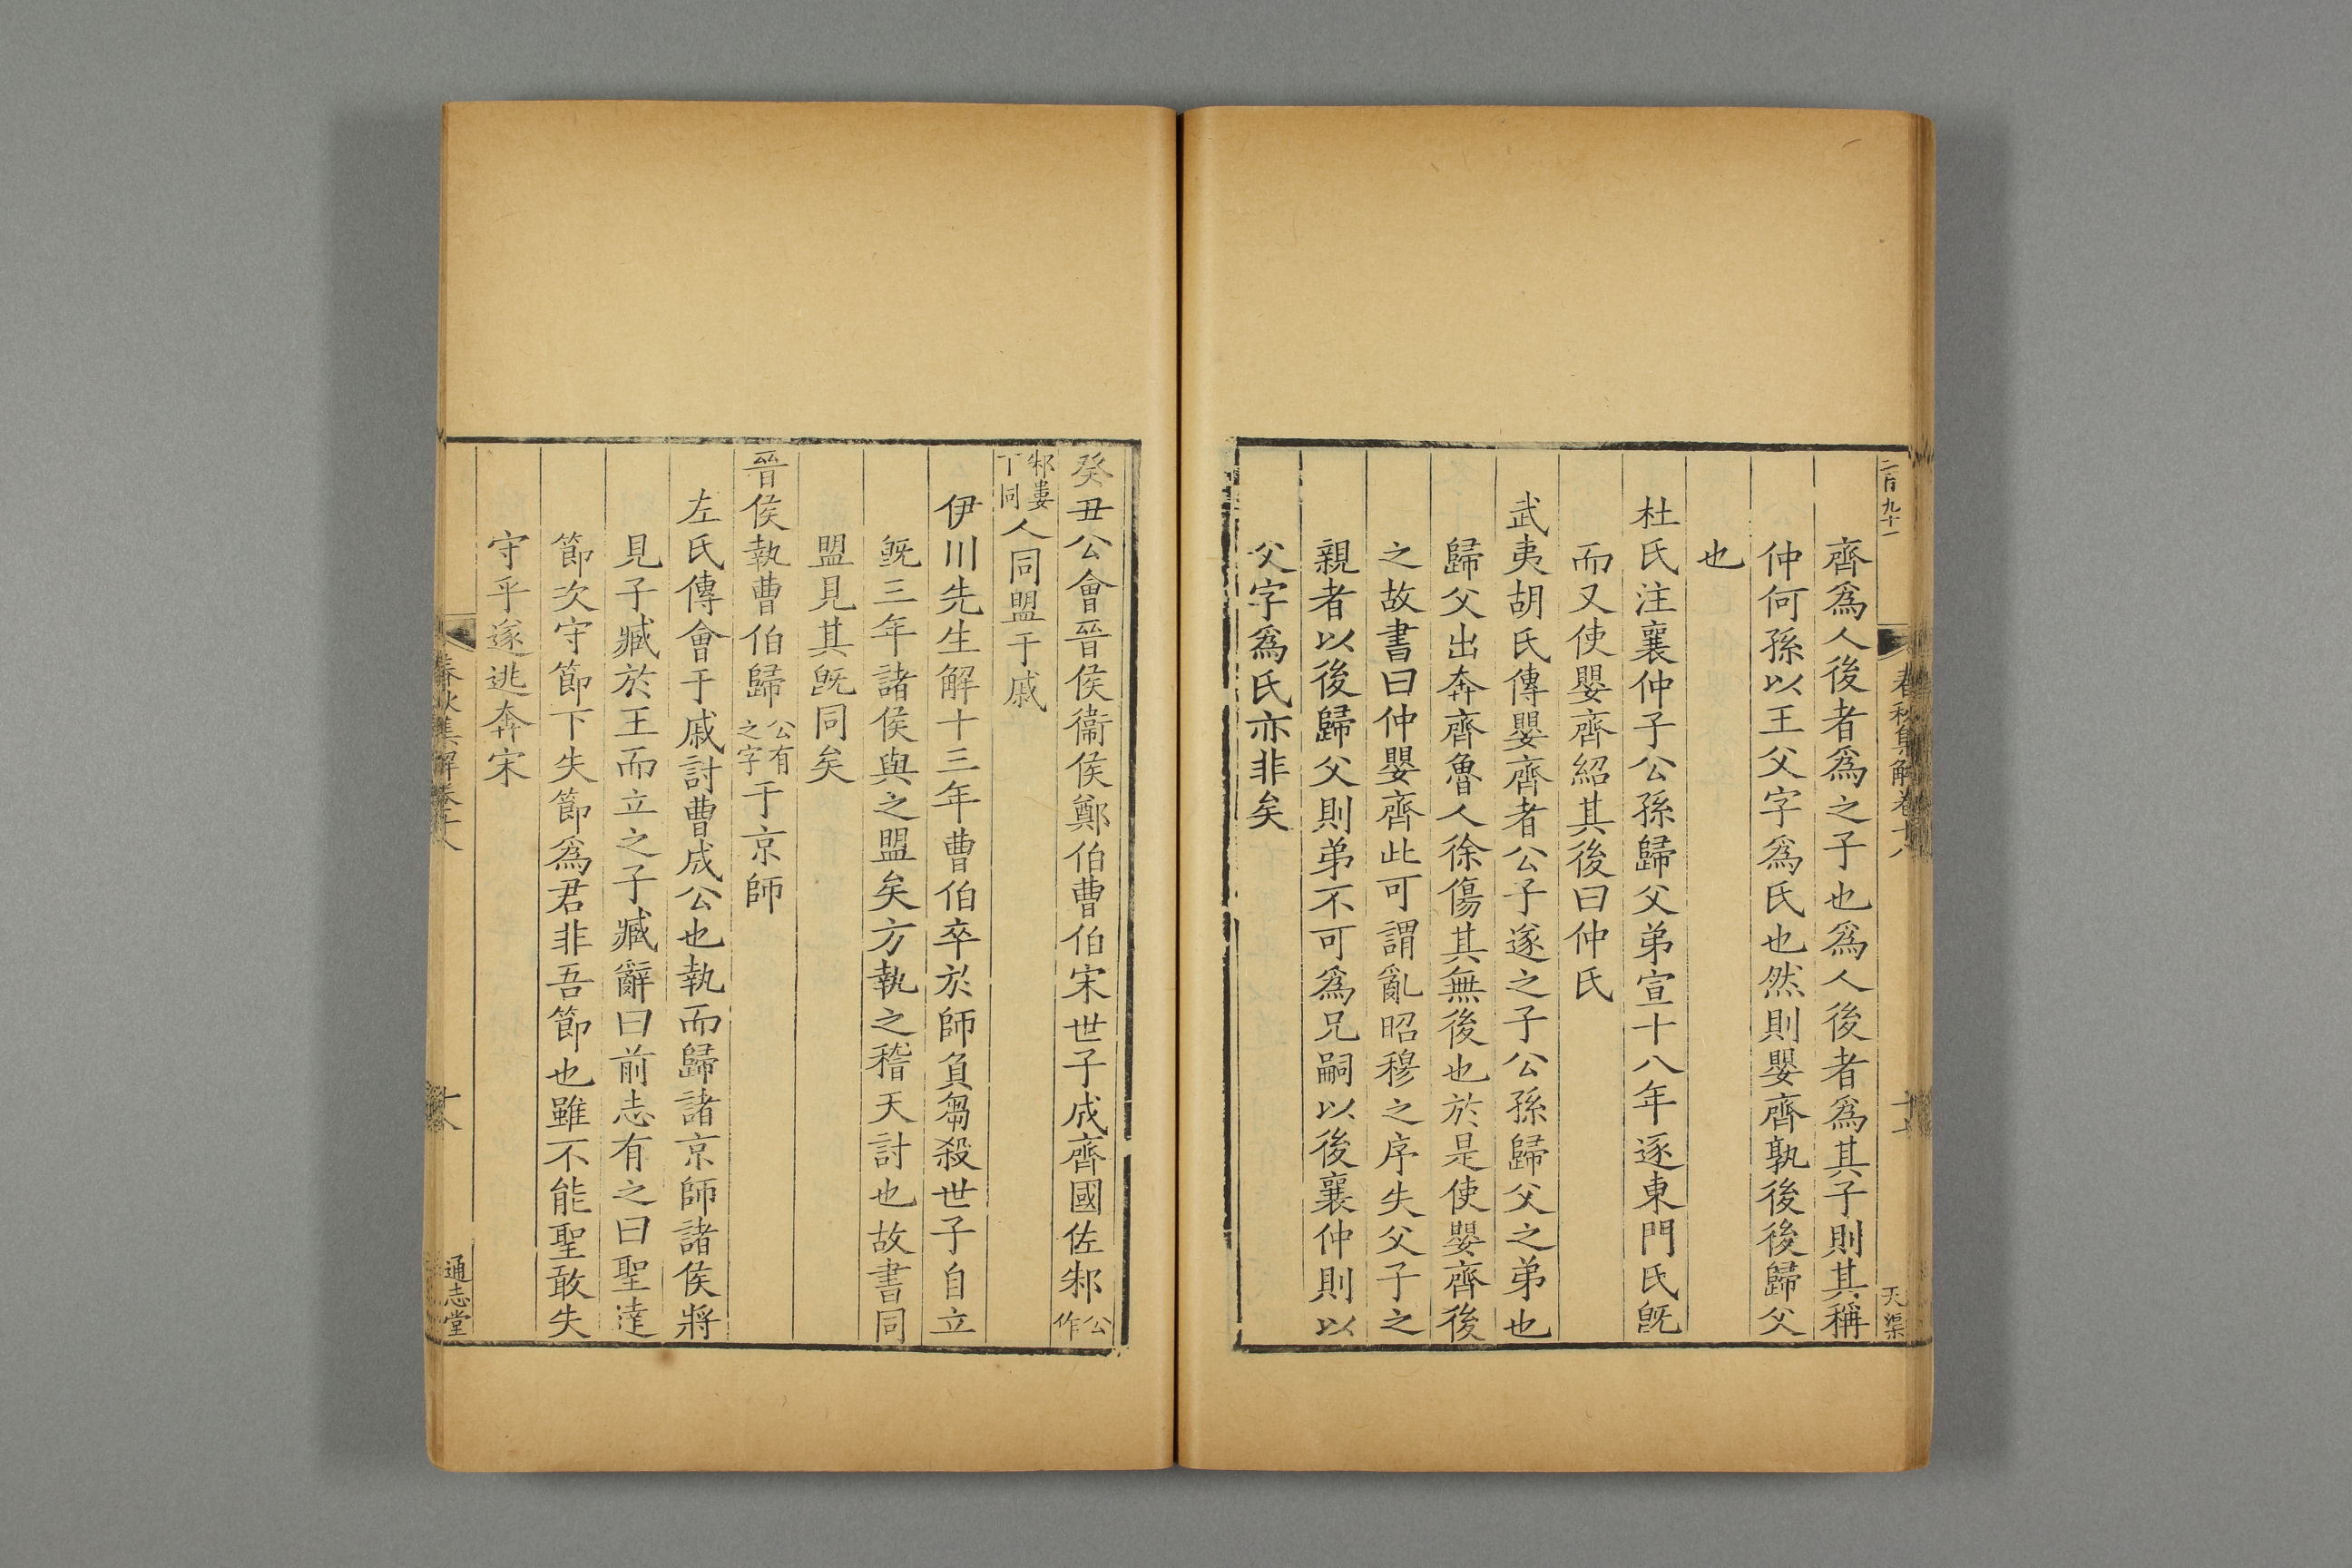 二百九十一
春秋集解卷十八
天渠
齊爲人後者爲之子也爲人後者爲其子則其稱
仲何孫以王父字爲氏也然則嬰齊孰後後歸父
也
杜氏注襄仲子公孫歸父弟宣十八年逐東門氏旣
而又使嬰齊紹其後曰仲氏
武夷胡氏傳嬰齊者公子遂之子公孫歸父之弟也
歸父出奔齊魯人徐傷其無後也於是使嬰齊後
之故書曰仲嬰齊此可謂亂昭穆之序失父子之
親者以後歸父則弟不可爲兄嗣以後襄仲則以
父字爲氏亦非矣
癸丑公會晉侯衞侯鄭伯曹伯宋世子成齊國佐邾公作
邾婁下同人同盟于戚
伊川先生解十三年曹伯卒於師負芻殺世子自立
旣三年諸侯與之盟矣方執之稽天討也故書同
盟見其旣同矣
晉侯執曹伯歸公有之字于京師
左氏傳會于戚討曹成公也執而歸諸京師諸侯將
見子臧於王而立之子臧辭曰前志有之曰聖達
節次守節下失節爲君非吾節也雖不能聖敢失
守乎遂逃奔宋
春秋集解卷十八
十八
通志堂